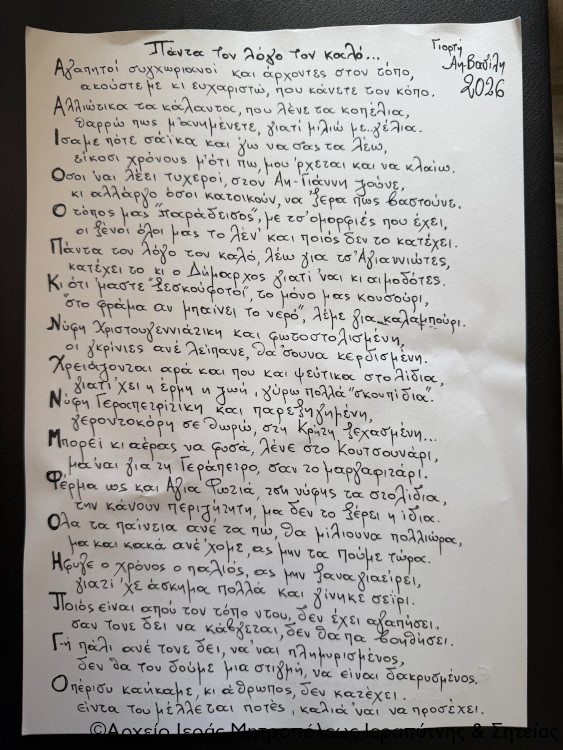 Πάντα τον λόγο τον καλό...
Γιορτή
Αη-Βασίλη
2026
Αγαπητοί συγχωριανοί και άρχοντες στον τόπο,
ακούστε με κι ευχαριστώ, που κάνετε τον κόπο.
Αλλιώτικα τα κάλαντα, που λένε τα κοπέλια,
θαρρώ πως μ'ανημένετε, γιατί μιλώ με..γέλια.
Ίσαμε πότε σάικα και γω να σας τα λέω,
είκοσι χρόνους μ'ότι πω, μου 'ρχεται και να κλαίω.
Όσοι 'ναι λέει τυχεροί, στον Αη-Γιάννη ζούνε,
κι αλλάργο όσοι κατοικούν, να ξερα πως βαστούνε.
Ο τόπος μας "παράδεισος", με τσ'ομορφιές που έχει,
οι ξένοι όλοι μας το λεν' και ποιός δεν το κατέχει.
Πάντα τον λόγο τον καλό, λέω για τσ'Αγιαννιώτες,
κατέχει το κι ο Δήμαρχος γιατί 'ναι κι αιμοδότες.
Κι ότι 'μαστε "ξεσκούφωτοι", το μόνο μας κουσούρι,
"στο φράμα αν μπαίνει το νερό", λέμε για καλαμπούρι.
Νύφη Χριστουγεννιάτικη και φωτοστολισμένη,
οι γκρίνιες ανέ λείπανε, θα 'σουνα κερδισμένη.
Χρειάζονται αρά και που και ψεύτικα στολίδια,
γιατί 'χει η έρμη η ζωή, γύρω πολλά "σκουπίδια".
Νύφη Γεραπετρίτικη και παρεξηγημένη,
γεροντοκόρη σε θωρώ, στη Κρήτη ξεχασμένη...
Μπορεί κι αέρας να φυσά, λένε στο Κουτσουνάρι,
μα 'ναι για τη Γεράπετρο, σαν το μαργαριτάρι.
Φέρμα ως και Αγια Φωτιά, τση νύφης τα στολίδια,
την κάνουν περιζήτητη, μα δεν το ξέρει η ίδια.
Όλα τα παίνεια ανέ τα πω, θα μίλιουνα πολλιώρα,
μα και κακά ανέ 'χομε, ας μην τα πούμε τώρα.
Ήφυγε ο χρόνος ο παλιός, ας μην ξαναγιαείρει,
γιατί 'χε άσκημα πολλά και γίνηκε σείρι.
Ποιός είναι απού τον τόπο ντου, δεν έχει αγαπήσει.
σαν τονε δει να κάβγεται, δεν θα πα βοηθήσει.
Γ-ή πάλι ανέ τονε δει, να 'ναι πλημυρισμένος,
δεν θα τον δούμε μια στιγμή, να είναι δακρυσμένος.
Ο πέρισυ καύκαμε, κι άθρωπος, δεν κατέχει.
είντα του μέλλεται ποτές, καλιά 'ναι να προσέχει.
©Αρχείο Ιεράς Μητροπόλεως Ιεραπύτνης & Σητείας